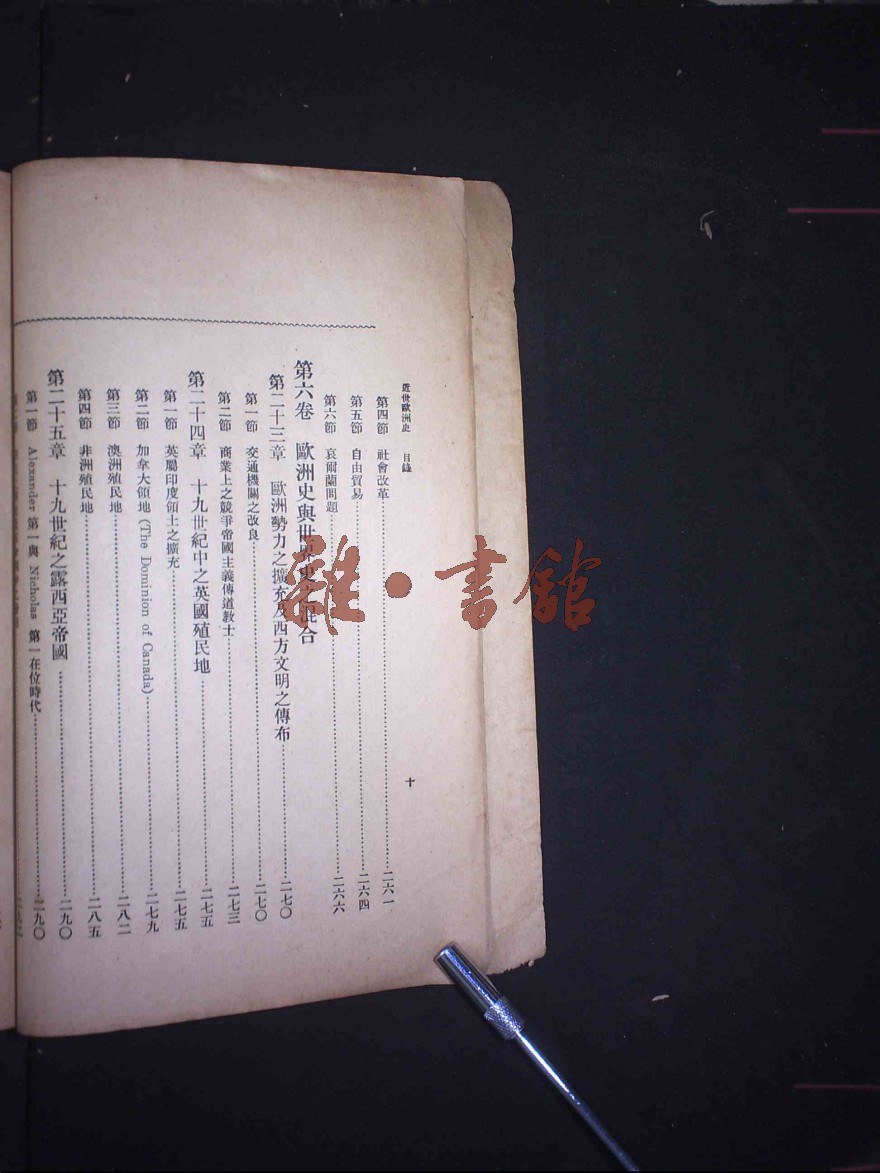 近世歐洲史　目錄
十
第四節　社會改革……二六一
第五節　自由貿易……二六四
第六節　哀爾蘭問題……二六六
第六卷　歐洲史與世界史之混合
第二十三章　歐洲勢力之擴充及西方文明之傳布……二七〇
第一節　交通機關之改良……二七〇
第二節　商業上之競爭帝國主義傳道教士……二七三
第二十四章　十九世紀中之英國殖民地……二七五
第一節　英屬印度領土之擴充……二七五
第二節　加拿大領地 (The Dominion of Canada)……二七九
第三節　澳洲殖民地……二八二
第四節　非洲殖民地……二八五
第二十五章　十九世紀之露西亞帝國……二九〇
第一節　Alexander 第一與 Nicholas 第一在位時代……二九〇
雜·書館